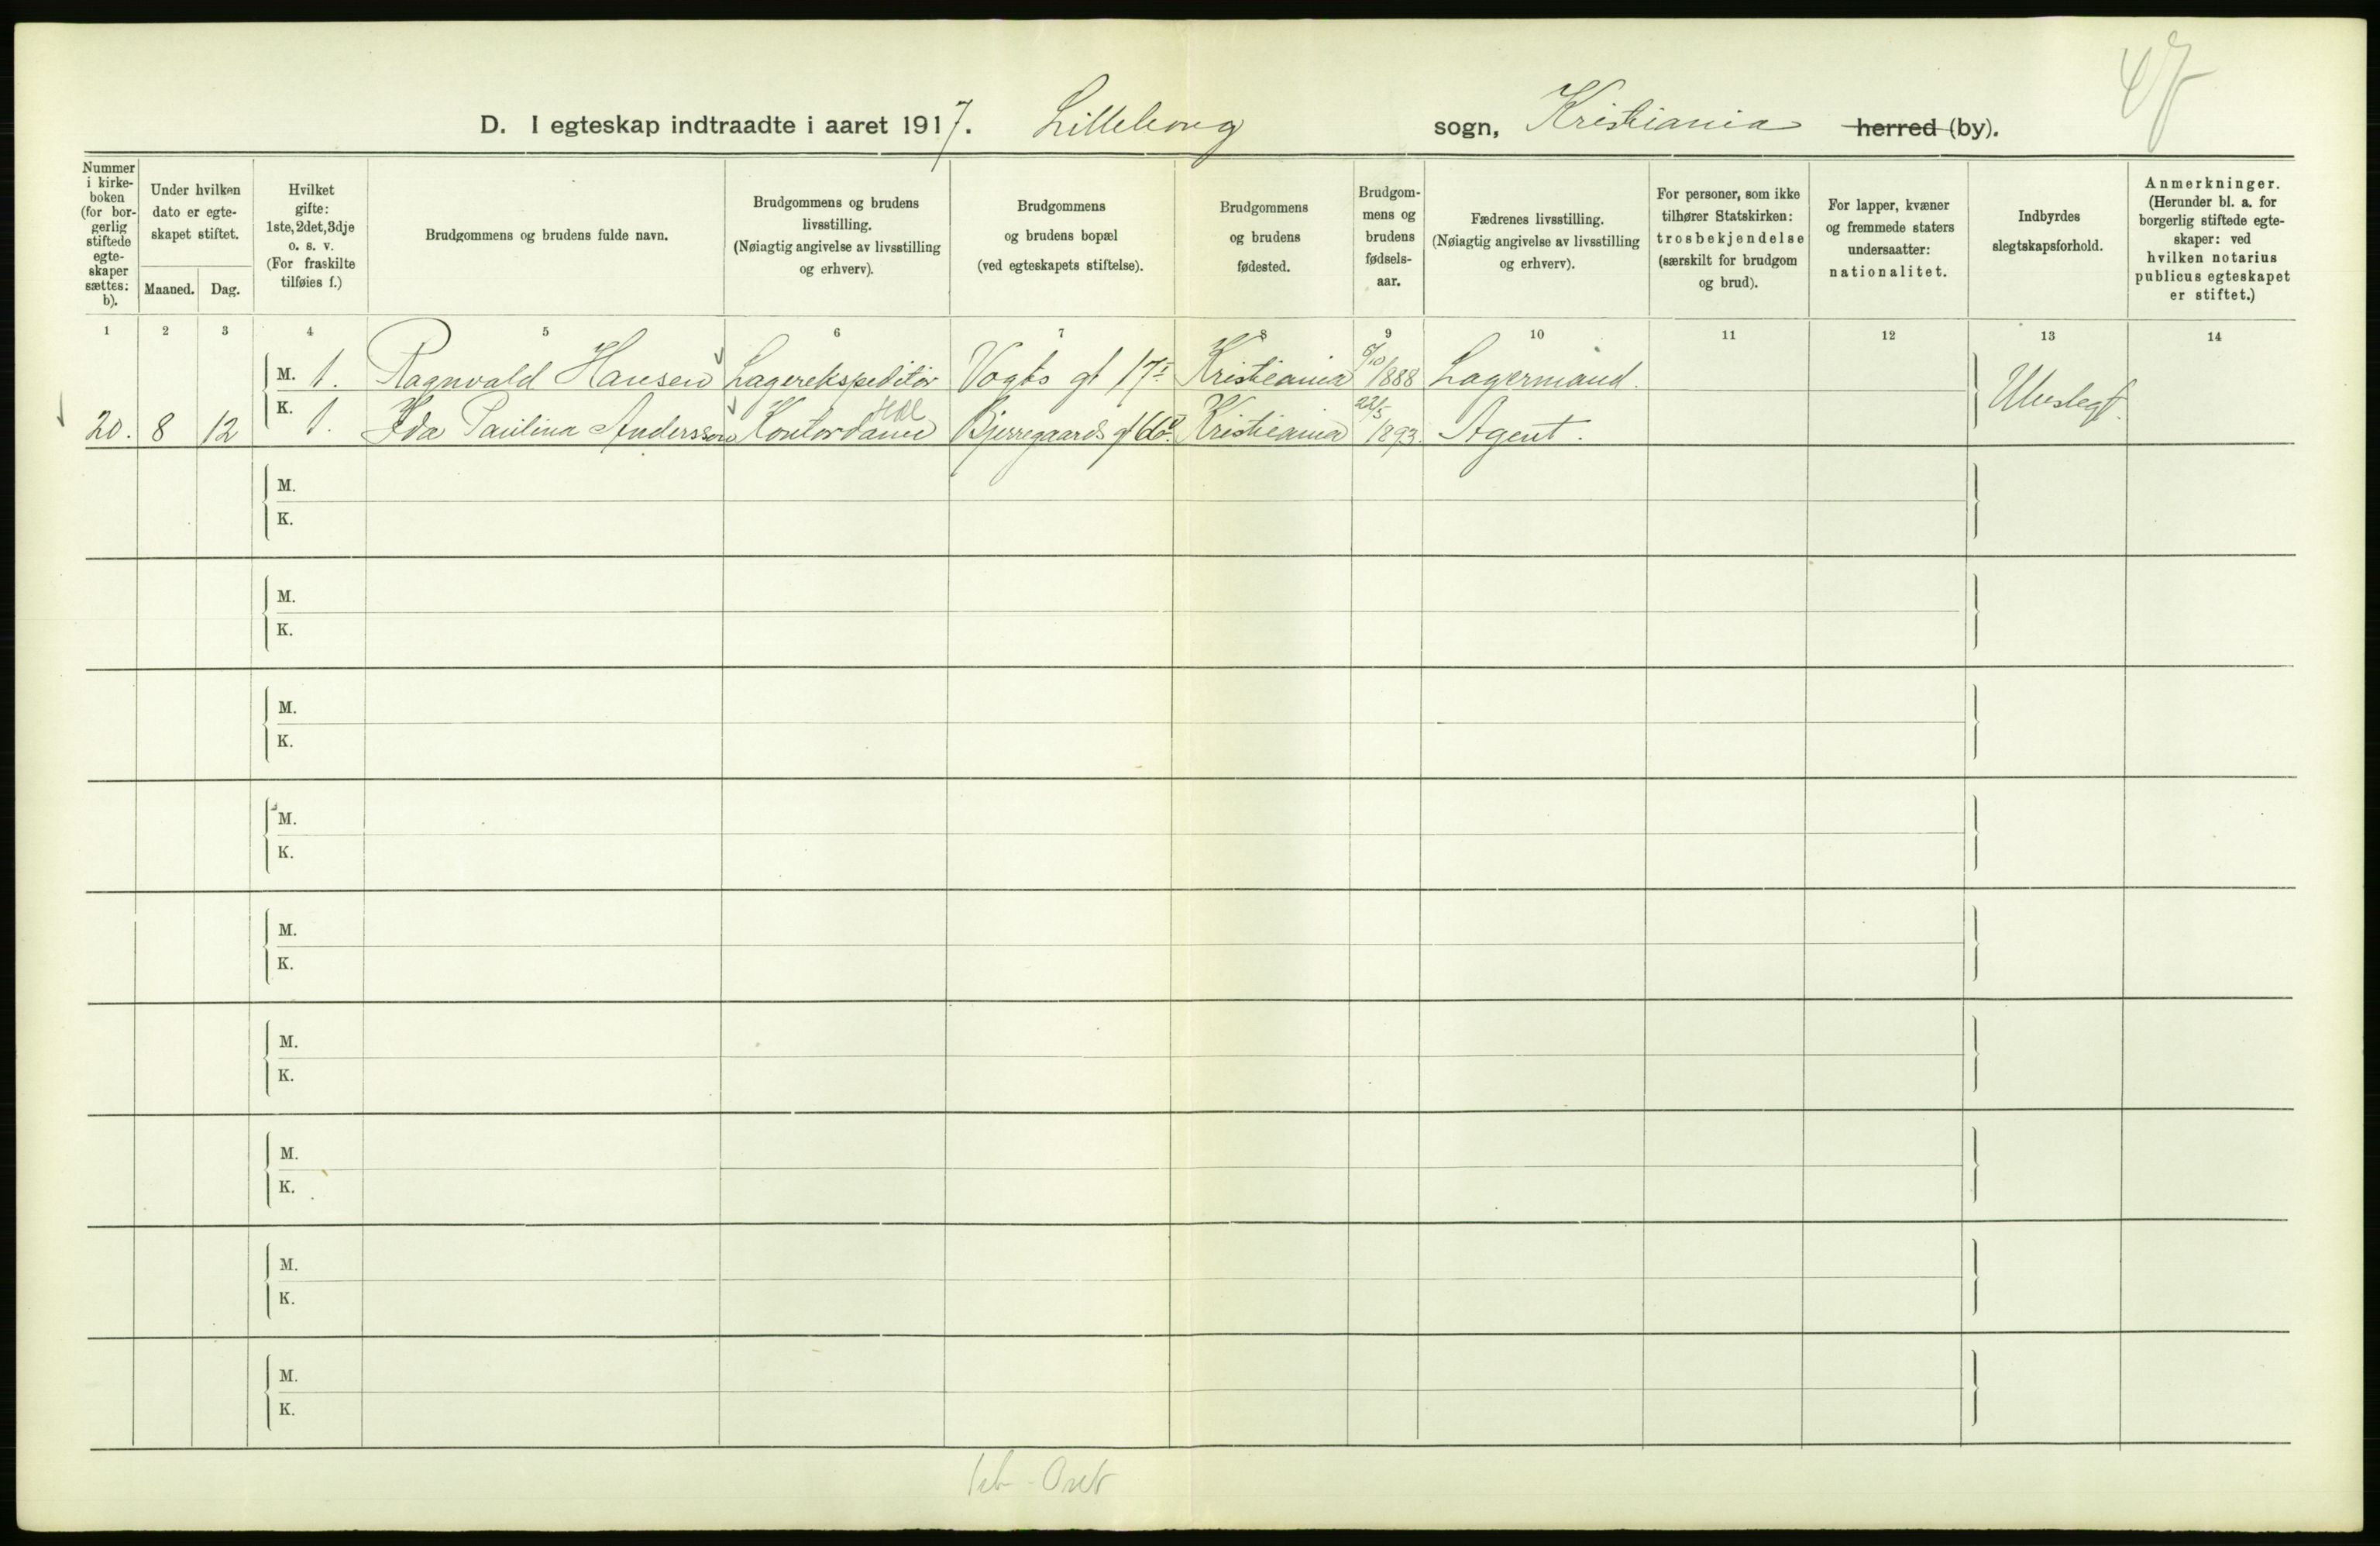 47
D. I egteskap indtraadte i aaret 1917. Lilleborg sogn, Kristiania herred (by).
Nummer i kirke- boken (for bor- gerlig stiftede egte- skaper sættes: b).
Under hvilken dato er egte- skapet stiftet.
Maaned. Dag.
Hvilket gifte: 1ste, 2det, 3dje o. s. v. (For fraskilte tilføies f.)
Brudgommens og brudens fulde navn.
Brudgommens og brudens livsstilling. (Nøiagtig angivelse av livsstilling og erhverv).
Brudgommens og brudens bopæl (ved egteskapets stiftelse).
Brudgommens og brudens fødested.
Brudgom- mens og brudens fødsels- aar.
Fædrenes livsstilling. (Nøiagtig angivelse av livsstilling og erhverv).
For personer, som ikke tilhører Statskirken: trosbekjendelse (særskilt for brudgom og brud).
For lapper, kvæner og fremmede staters undersaatter: nationalitet.
Indbyrdes slegtskapsforhold.
Anmerkninger. (Herunder bl. a. for borgerlig stiftede egte- skaper: ved hvilken notarius publicus egteskapet er stiftet.)
1 2 3 4 5 6 7 8 9 10 11 12 13 14
M. 1. Ragnvald Hansen Lagerekspeditör Vogts gt 17 I Kristiania 6/10 1888 Lagermand. Ubeslegt.
20. 8 12 K. 1. Ida Paulina Andersson Kontordame Bjerregaards gt Kristiania 22/5 1893. Agent.
M.
K.
M.
K.
M.
K.
M.
K.
M.
K.
M.
K.
M.
K.
M.
K.
M.
K.